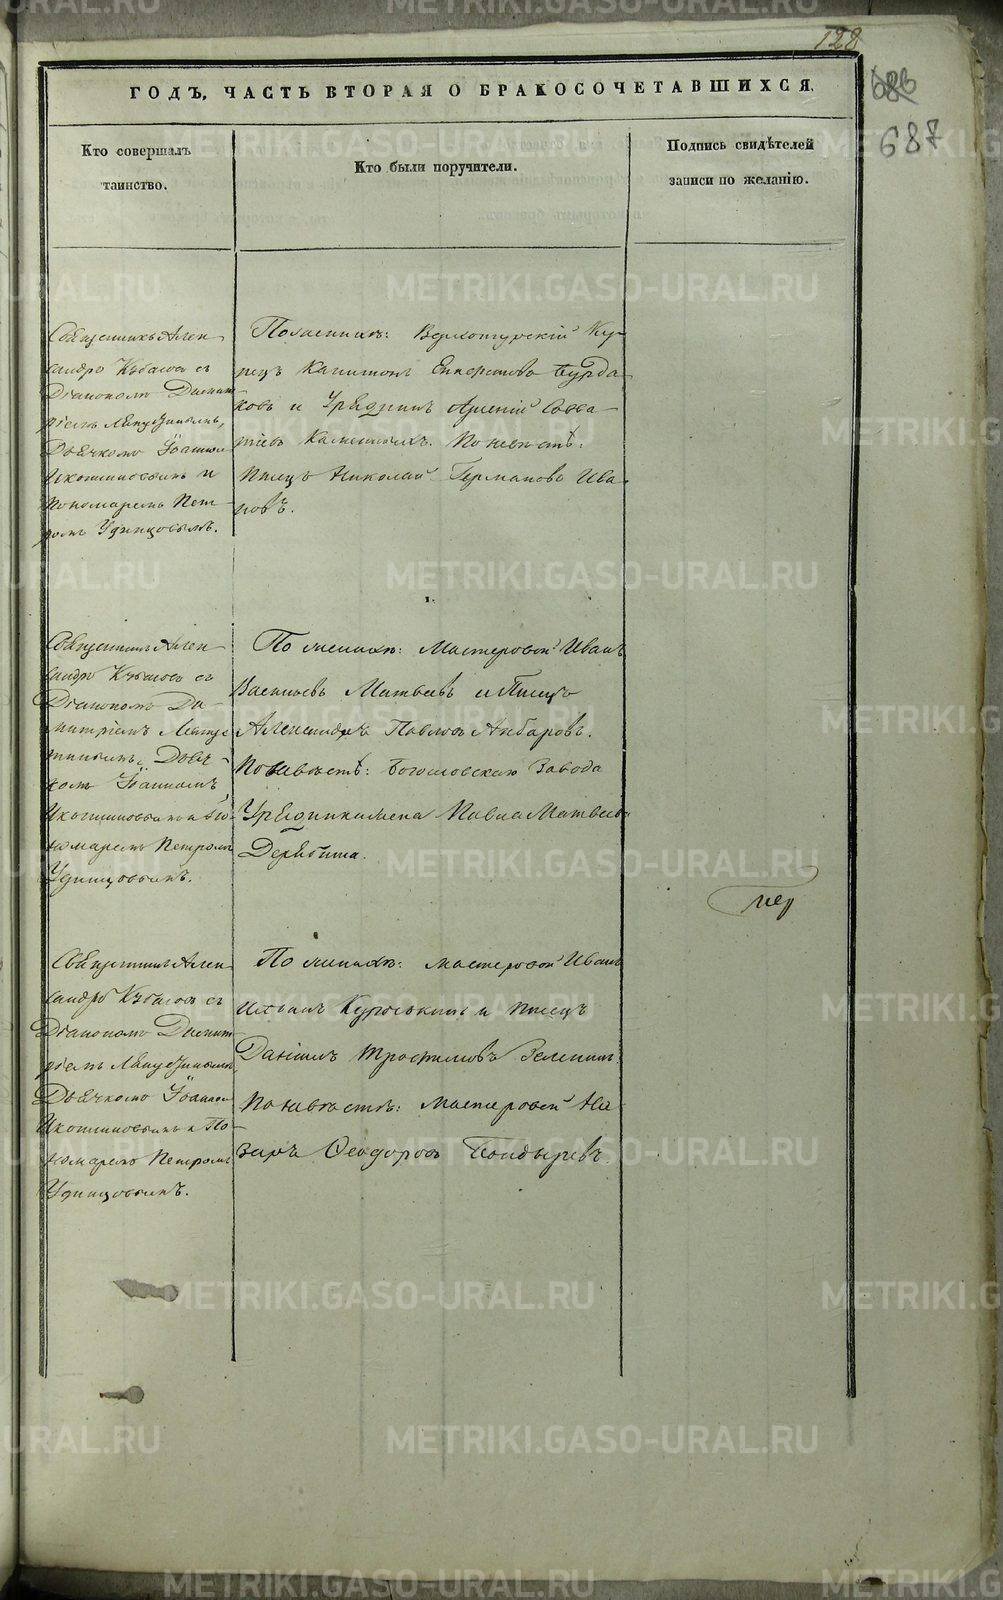 128
686
687
ГОДЪ, ЧАСТЬ ВТОРАЯ О БРАКОСОЧЕТАВШИХСЯ.
Кто совершалъ
таинство.
Кто были поручители.
Подпись свидѣтелей
записи по желанію.
Священникъ Алек-
сандръ с
Діакономъ Димит-
ріемъ
Дьячкомъ Іоанномъ
и
Пономаремъ Пет-
ромъ Удинцовымъ.
По женихѣ: Верхотурскій Ку-
пецъ Капитонъ Бурда-
ковъ и Урядникъ Арсеній Савва-
тіевъ По невѣстѣ:
Писецъ Николай Германовъ Ива-
новъ.
Священникъ Алек-
сандръ съ
Діакономъ Ди-
митріемъ
Дьяч-
комъ Іоанномъ
и По-
номаремъ Петромъ
Удинцовымъ.
По женихѣ: Мастеровой Иванъ
Васильевъ Матвеевъ и Писецъ
Александръ Павловъ Анбаровъ.
По невѣстѣ: Богословскаго Завода
Павла Матвеева
Дерябина.
пер
Священникъ Алек-
сандръ съ
Діакономъ Димит-
ріемъ
Дьячкомъ Іоанномъ
и По-
номаремъ Петромъ
Удинцовымъ.
По женихѣ: мастеровой Иванъ
и Писецъ
Даніилъ Трофимовъ Зеленинъ.
По невѣстѣ: Мастеровой На-
заръ Ѳеодоровъ Болдыревъ.
METRIKI.GASO-URAL.RU